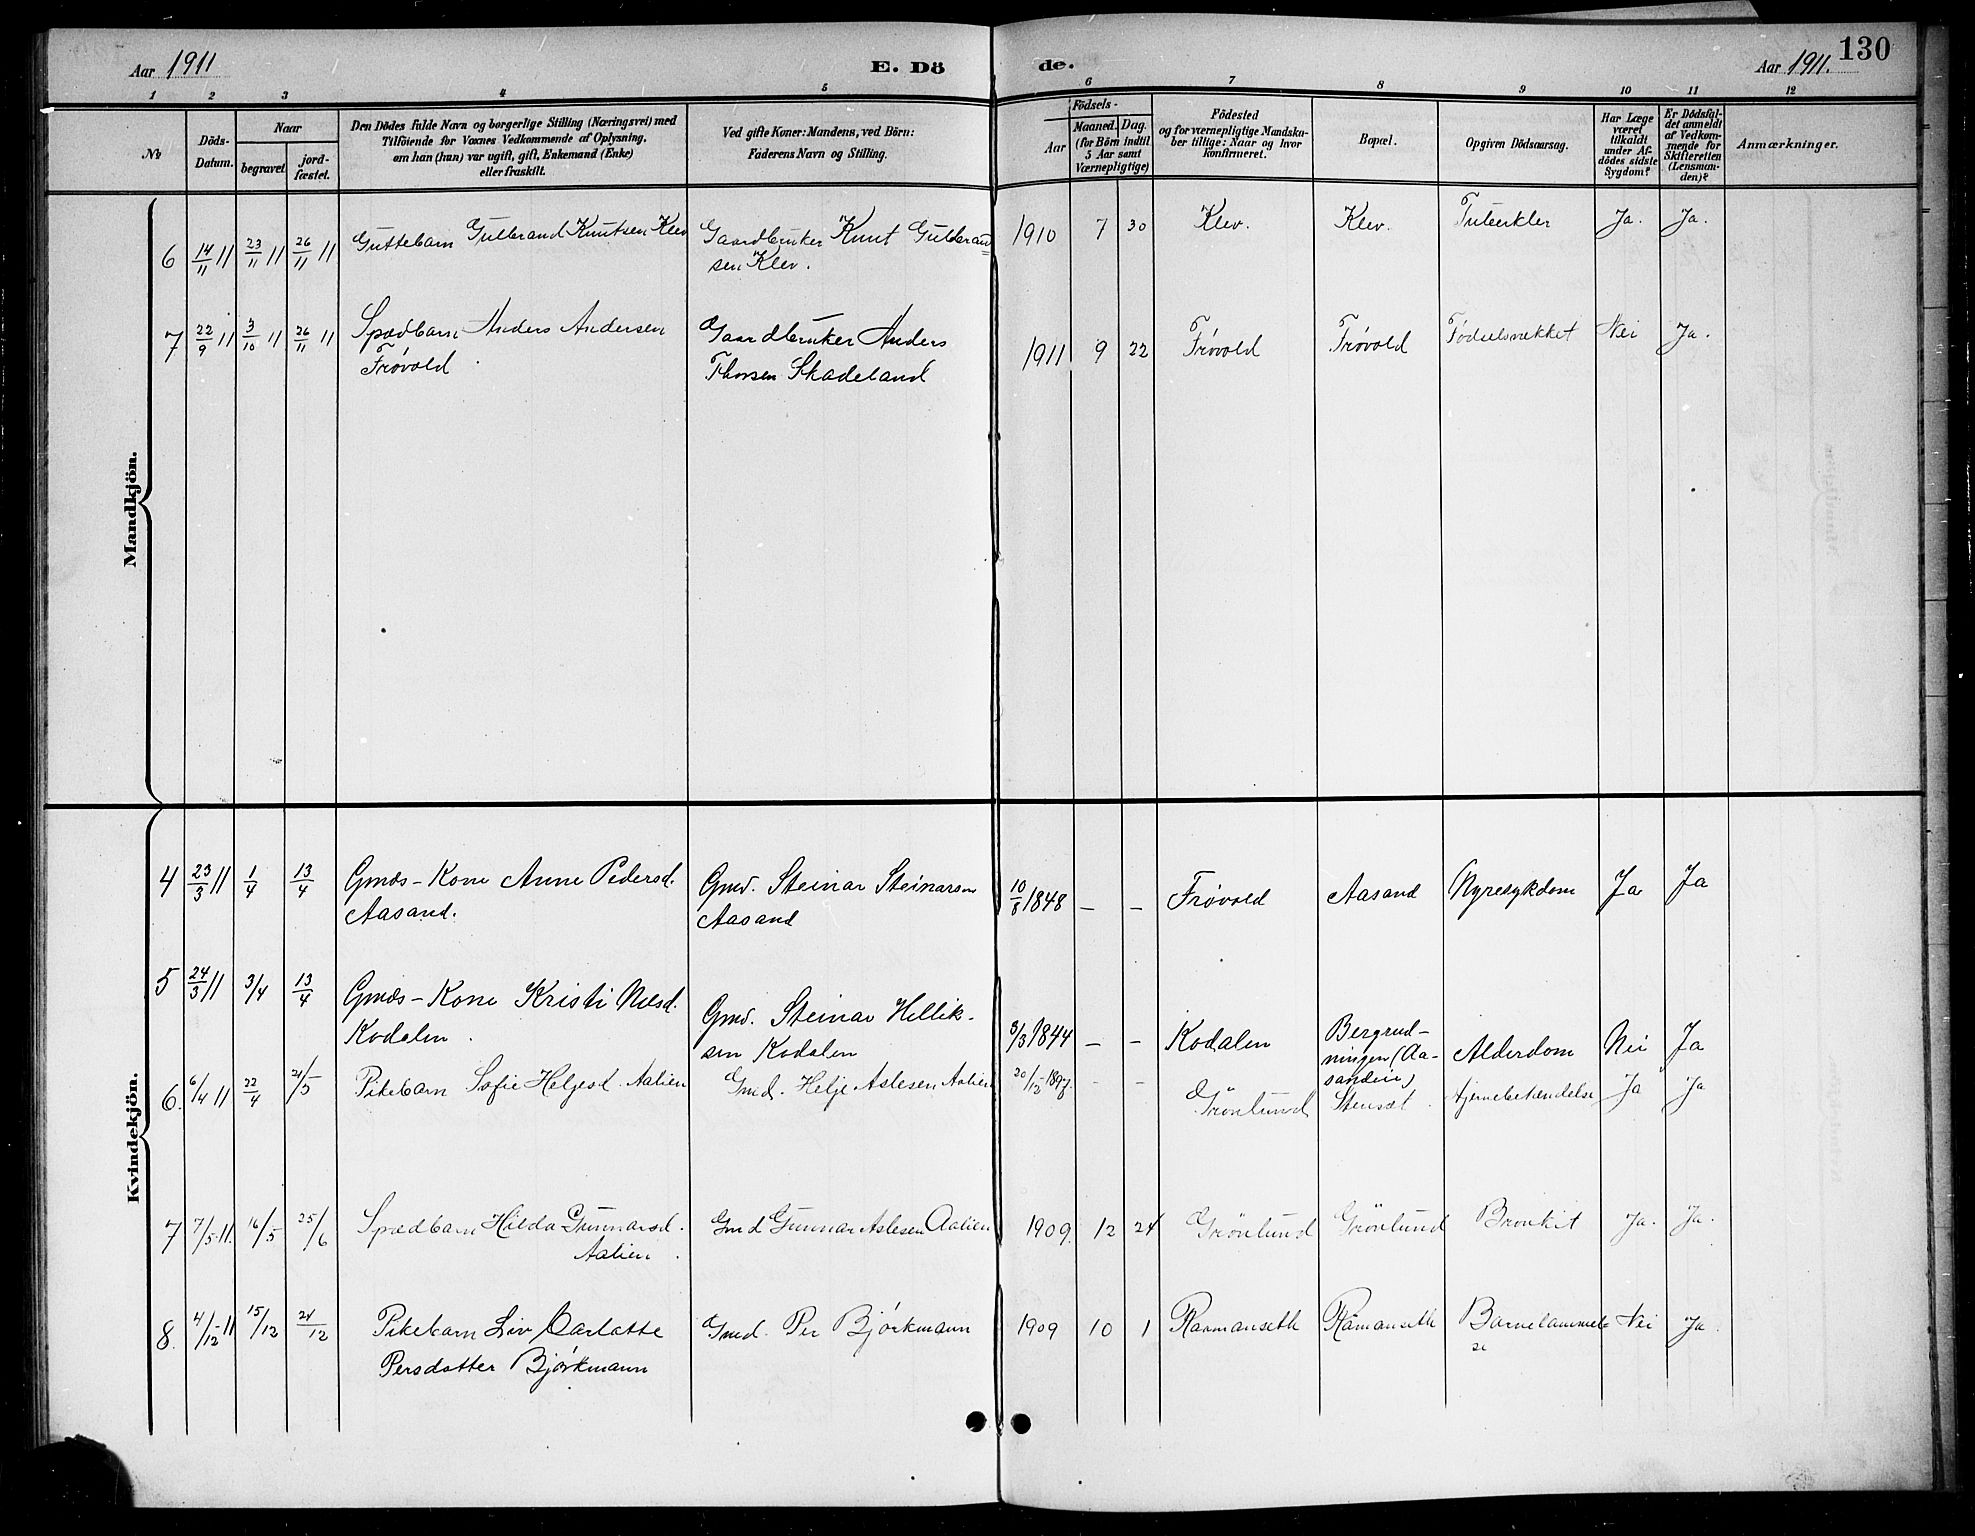 Aar 1911
E. Dö
de.
Aar 1911.
130
1 2 3 4 5
6 7 8 9 10 11 12
No
Döds-
Datum.
Naar
begravet
jord-
fæstet.
Den Dödes fulde Navn og borgerlige Stilling (Næringsvei) med
Tilföiende for Voxnes Vedkommende af Oplysning,
om han (hun) var ugift, gift, Enkemand (Enke)
eller fraskilt.
Ved gifte Koner: Mandens, ved Börn:
Faderens Navn og Stilling.
Födsels-
Aar
Maaned. Dag.
(for Börn indtil
5 Aar samt
Værnepligtige)
Födested
og for værnepligtige Mandska-
ber tillige: Naar og hvor
konfirmeret.
Bopæl.
Opgiven Dödsaarsag.
Har Læge
været
tilkaldt
under Af-
dödes sidste
Sygdom?
Er Dödsfal-
det anmeldt
af Vedkom-
mende for
Skifteretten
(Lensman-
den)?
Anmærkninger.
Mandkjön.
6 14/11 11 23/11 11 26/11 11 Guttebarn Gulbrand Knutsen Klev Gaardbruker Knut Gulbrand
sen Klev.
1910 7 30 Klev. Klev. Tuberkler Ja. Ja.
7 22/9 11 3/10 11 26/11 11 Spædbarn Anders Andersen
Frøvold
Gaardbruker Anders
Thorsen Skadeland
1911 9 22 Frøvold Frøvold Fødselsvekket Nei Ja.
Kvindekjön.
4 23/3 11 1/4 13/4 Gmds-Kone Anne Pedersd.
Aasand.
Gmd. Steinar Steinarsen
Aasand
10/8 1848 - - Frøvold Aasand Nyresykdom Ja Ja
5 24/3 11 3/4 13/4 Gmds-Kone Kristi Nilsd.
Kodalen.
Gmd. Steinar Hellik-
sen Kodalen
3/3 1844 - - Kodalen Bergrud-
ningen (Aa-
sandeie)
Alderdom Nei Ja
6. 6/4 11 22/4 21/5 Pikebarn Sofie Helgesd. Aalien Gmd. Helje Aslesen Aalien
20/12 1897. - - Grönlund Stensæt. Hjernebetændelse Ja Ja
7 7/5-11. 16/5 25/6 Spædbarn Hilda Gunnarsd.
Aalien.
Gmd Gunnar Aslesen Aalien
1909. 12 24 Grönlund Grönlund Bronkit Ja. Ja.
8. 4/12-11 15/12 24/12 Pikebarn Liv Carlotte
Persdatter Bjørkmann
Gmd. Per Bjørkmann
1909 10 1 Ramanseth Ramanseth Barnelammel-
se
Nei Ja.